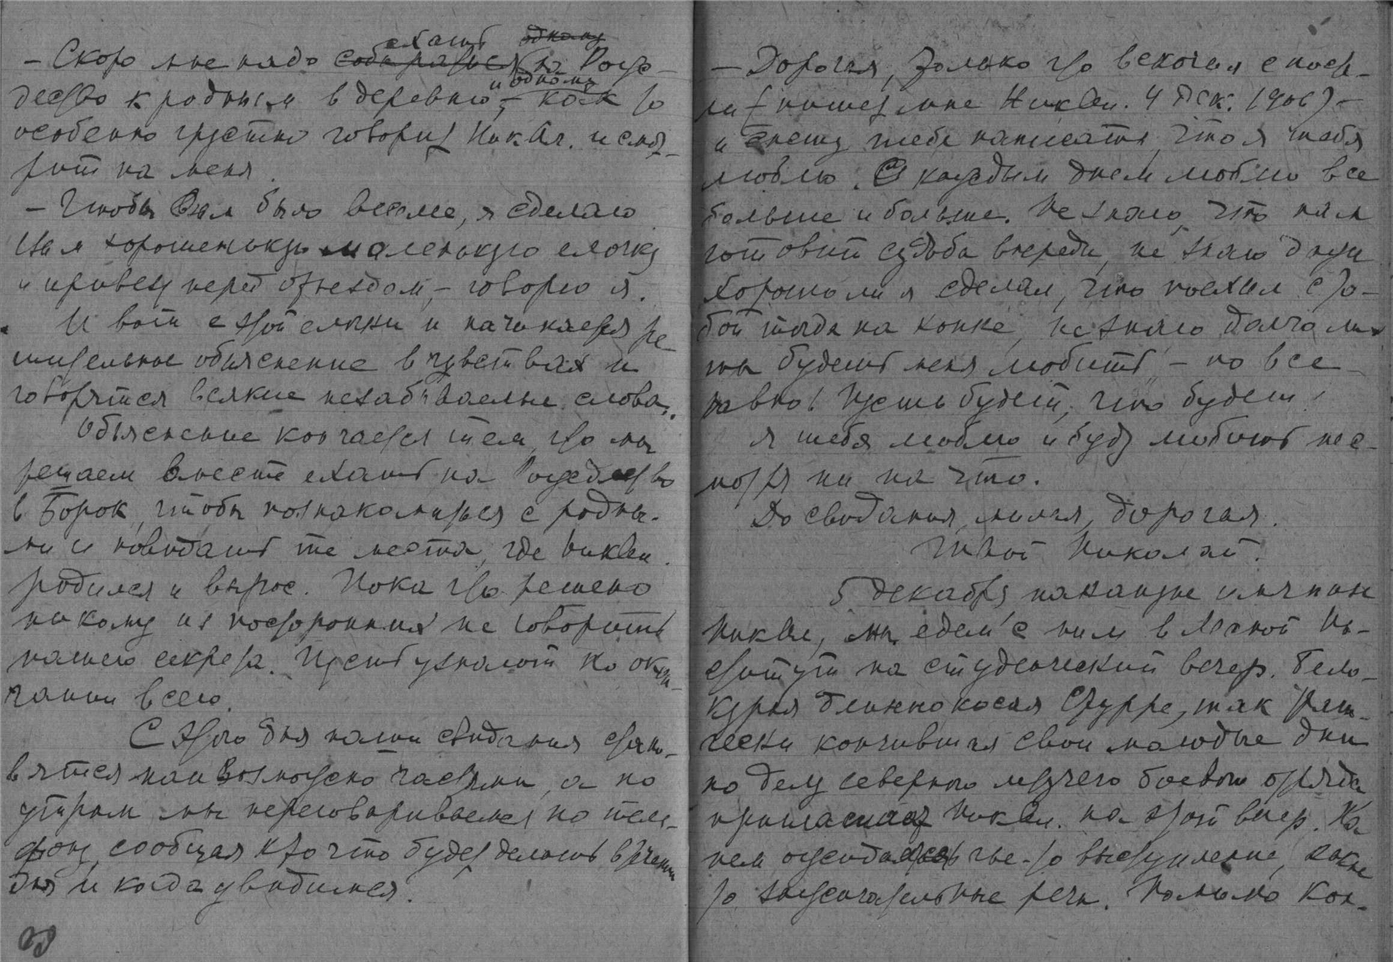 – Скоро мне надо ехать на Рож-
дество к родным в деревню и одному, – как то
особенно грустно говорит Ник Ал. и смот-
рит на меня.
– Чтобы Вам было веселее, я сделаю
Вам хорошенькую маленькую елочку
и привезу перед отъездом, – говорю я.
И вот с этой елки и начинается ре-
шительное объяснение в чувствах и
говорятся всякие незабываемые слова.
Объяснение кончается тем, что мы
решаем вместе ехать на Рождество
в Борок, чтобы познакомиться с родны-
ми и повидать те места, где Ник Ал.
родился и вырос. Пока что решено
никому из посторонних не говорить
нашего секрета. Пусть узнают по окон-
чании всего.
С этого дня наши свидания стано-
вятся по возможности частыми, а по
утрам мы переговариваемся по теле-
фону, сообщая кто что будет делать в течении
дня и когда увидимся.
– Дорогая, только что вскочил с посте-
ли (пишет мне Ник Ал. 4 дек. 1906) –
и спешу тебе написать, что я тебя
люблю. С каждым днем люблю все
больше и больше. Не знаю, что нам
готовит судьба впереди, не знаю даже
хорошо ли я сделал, что поехал с то-
бой тогда на конке, не знаю долго ли
ты будешь меня любить – но все
равно! Пусть будет, что будет!
Я тебя люблю и буду любить нес-
мотря ни на что.
До свидания, милая, дорогая.
Твой Николай.
5 декабря накануне имянин
Ник Ал, мы едем с ним в Лесной Ин-
ститут на студенческий вечер. Бело-
курая длиннокосая Стуре, так траги-
чески кончившая свои молодые дни
по делу северного летучего боевого отряда
пригласила Ник Ал. на этот вечер. На
нем ожидается чье-то выступление, какие
то зажигательные речи. Помимо кон-